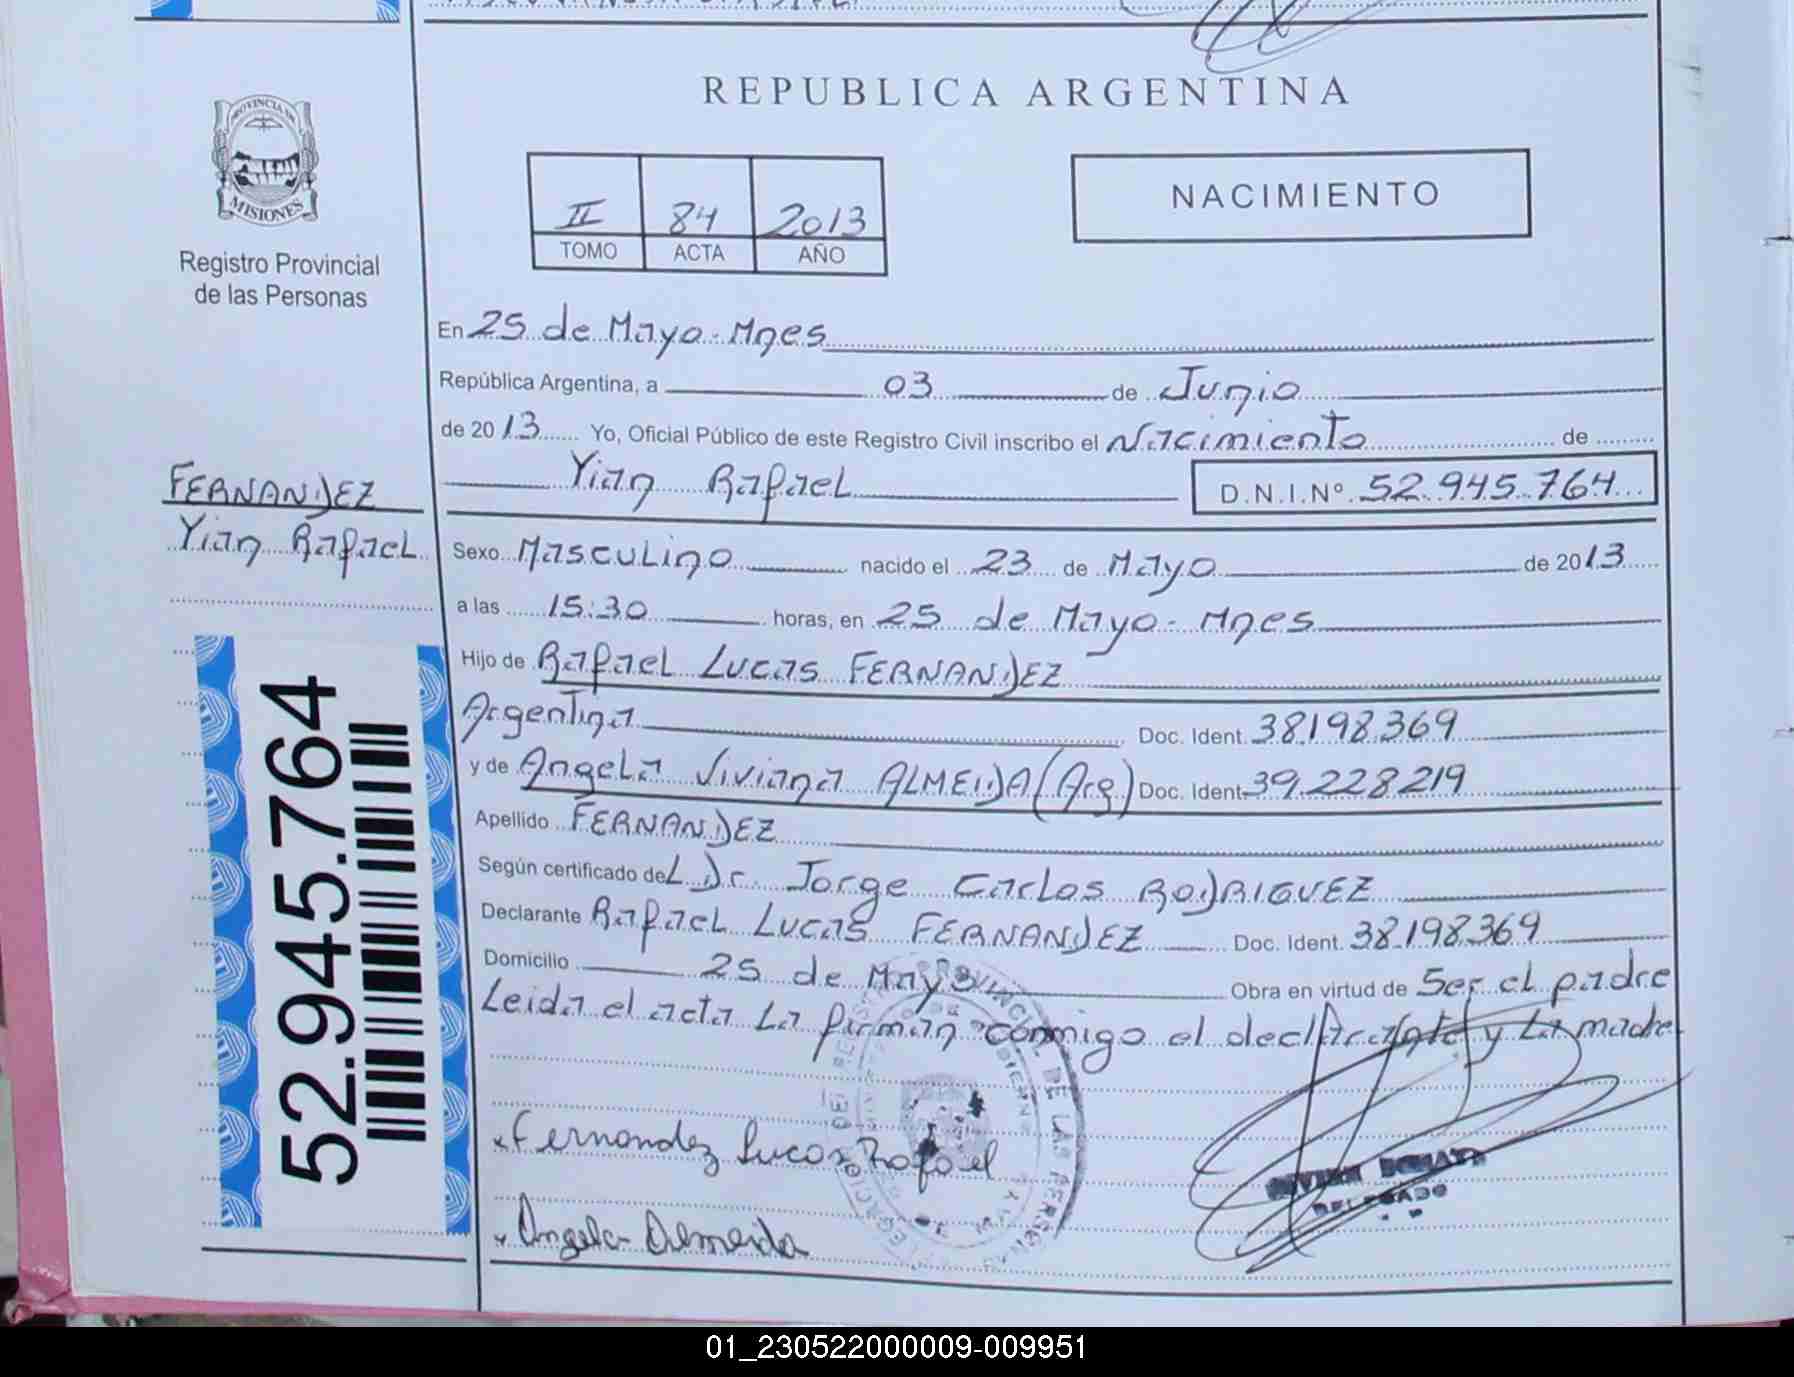 REPUBLICA ARGENTINA
PROVINCIA DE
MISIONES
Registro Provincial
de las Personas
II 84 2013
TOMO ACTA AÑO
NACIMIENTO
En 25 de Mayo - Mnes
República Argentina, a 03 de Junio
de 2013 Yo, Oficial Público de este Registro Civil inscribo el Nacimiento de
Yian Rafael D.N.I.Nº 52.945.764
FERNANDEZ
Yian Rafael
Sexo Masculino nacido el 23 de Mayo de 2013
a las 15:30 horas, en 25 de Mayo - Mnes
Hijo de Rafael Lucas FERNANDEZ
Argentina Doc. Ident. 38.198.369
y de Angela Viviana ALMEIDA (Arg.) Doc. Ident. 39.228.219
Apellido FERNANDEZ
Según certificado del Dr. Jorge Carlos RODRIGUEZ
Declarante Rafael Lucas FERNANDEZ Doc. Ident. 38.198.369
Domicilio 25 de Mayo Obra en virtud de Ser el padre
Leida el acta La firman conmigo el declarante y La madre
52.945.764
x Fernandez Lucas Rafael
x Angela Almeida
DELEGADO
01_230522000009-009951